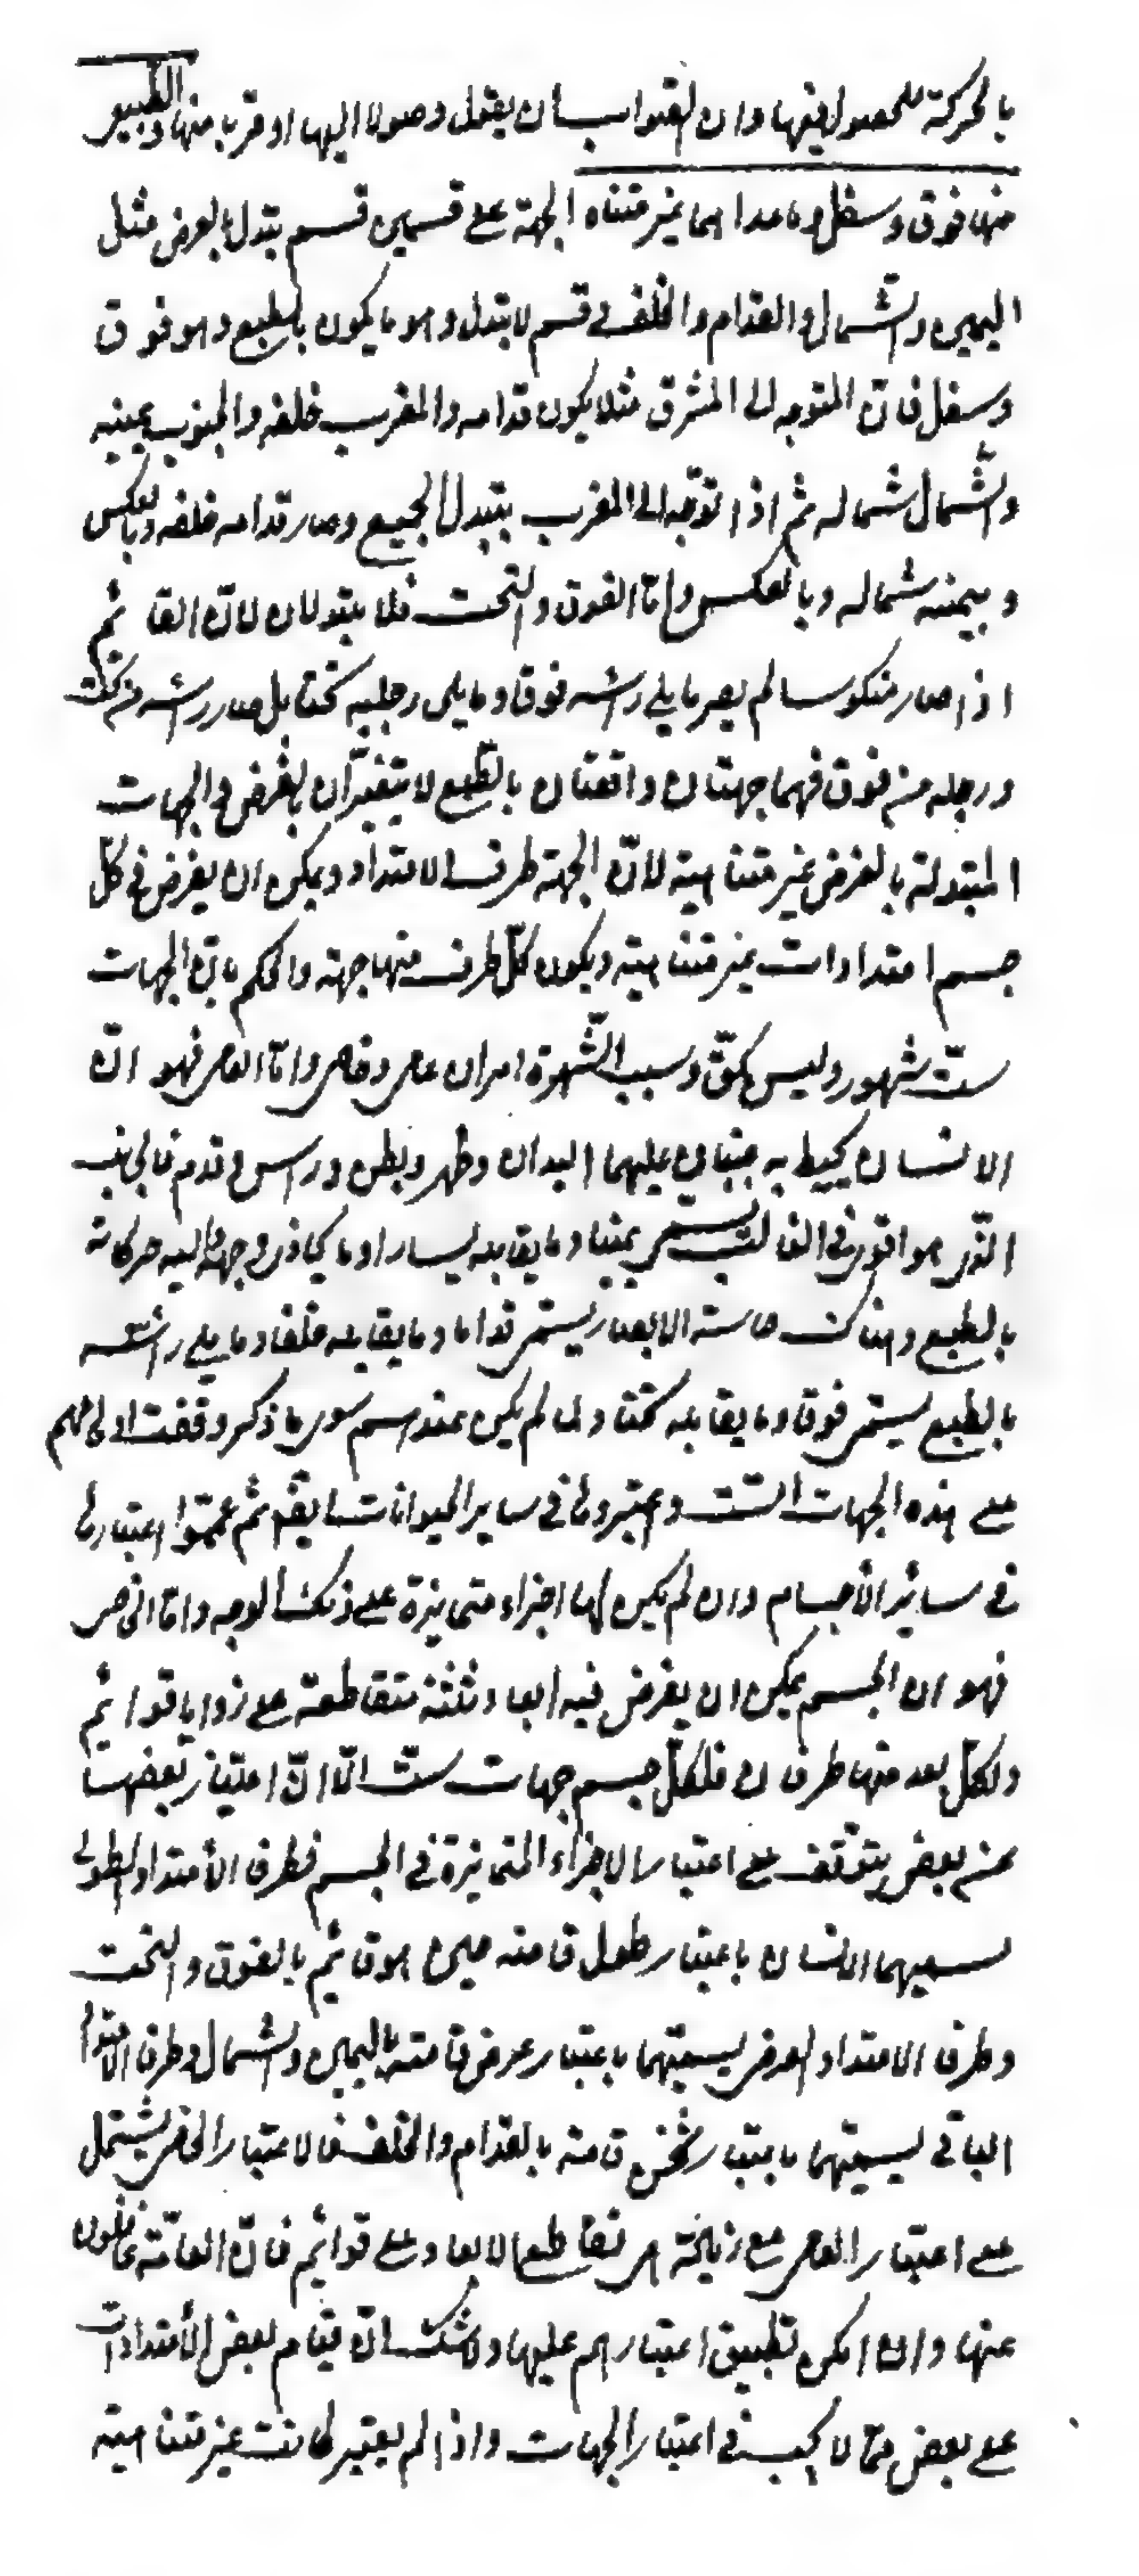 بالحركة للحصول فيها وان الصواب ان يقول وصولا اليها او قربا منها والطبيعي
منها فوق وسفل وما عداهما غير متناه الجهة على قسمين قسم يتبدل بالعرض مثل
اليمين والشمال والقدام والخلف وقسم لا يتبدل وهو ما يكون بالطبع وهو فوق
وسفل فان المتوجه الى المشرق مثلا يكون قدامه والمغرب خلفه والجنوب يمينه
والشمال شماله ثم اذا توجه الى المغرب يتبدل الجميع وصار قدامه خلفه وبالعكس
ويمينه شماله وبالعكس واما الفوق والتحت فلا يتبدلان لان القائم
اذا صار منكوسا لم يصر ما يلي رأسه فوقا وما يلي رجليه تحتا بل صار رأسه من تحت
ورجله من فوق فهما جهتان واقعتان بالطبع لا يتغيران بالفرض والجهات
المتبدلة بالفرض غير متناهية لان الجهة طرف الامتداد ويمكن ان يفرض في كل
جسم امتدادات غير متناهية ويكون كل طرف منها جهة والحكم بان الجهات
ست مشهور وليس بحق وسبب الشهرة امران عامي وخاصي واما العامي فهو ان
الانسان يحيط به جنبان عليهما اليدان وظهر وبطن وراس وقدم فالجانب
الذي هو اقوى في الغالب يسمى يمينا وما يقابله يسارا وما يحاذي وجهه واليه حركاته
بالطبع وهناك حاسة الابصار يسمى قداما وما يقابله خلفا وما يلي رأسه
بالطبع يسمى فوقا وما يقابله تحتا ولما لم يكن عندهم سوى ما ذكر وقفت اوهامهم
على هذه الجهات الست واعتبروها في ساير الحيوانات ايضا ثم عمموا اعتبارها
في سائر الأجسام وان لم يكن لها اجزاء متمايزة على ذلك الوجه واما الخاصي
فهو ان الجسم يمكن ان يفرض فيه ابعاد ثلثة متقاطعة على زوايا قوائم
ولكل بعد منها طرفان فلكل جسم جهات ست الا ان امتياز بعضها
عن بعض يتوقف على اعتبار الاجزاء المتمايزة في الجسم فطرفا الأمتداد الطولي
يسميهما الانسان باعتبار طول قامته حين هو قائم بالفوق والتحت
وطرفا الامتداد العرضي يسميهما باعتبار عرض قامته باليمين والشمال وطرفا الامتداد
الباقي يسميهما باعتبار ثخن قامته بالقدام والخلف فالاعتبار الخاصي يشتمل
على اعتبار العامي مع زيادة هي تقاطع الابعاد على قوائم فان العامة غافلون
عنها وان امكن تطبيق اعتبارهم عليها ولا شك ان قيام بعض الأمتدادات
على بعض مما لا يجب في اعتبار الجهات واذا لم يعتبر كانت غير متناهية